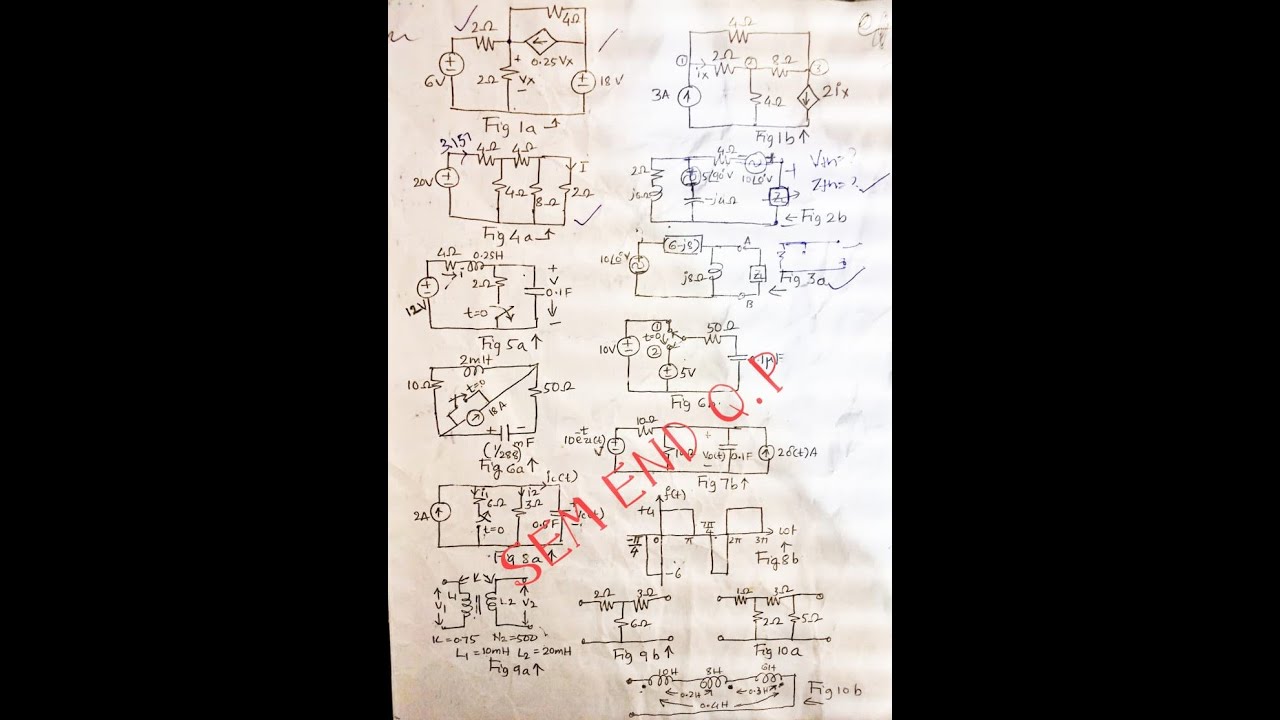 4Ω
2Ω
0.25Vx
+
2Ω
Vx
-
6V
18V
Fig 1a
4Ω
① ② ③
ix
2Ω
8Ω
3A
4Ω
2Ix
Fig 1b
3.157
4Ω
4Ω
I
20V
4Ω
8Ω
2Ω
Fig 4a
4Ω
2Ω
5∠90°V
10∠0°V
Vth=?
Zth=?
-j4Ω
Fig 2b
4Ω
0.25H
i
2Ω
+
V
-
0.1F
12V
t=0
Fig 5a
(6-j8)
A
10∠0°V
j8Ω
ZL
B
Fig 3a
2mH
10Ω
t=0
18A
50Ω
+ -
(1/288)mF
Fig 6a
50Ω
①
t=0
②
10V
5V
Fig 6
10Ω
10e⁻ᵗu(t)
+
Vo(t)
-
0.1F
2δ(t)A
Fig 7b
ic(t)
i1
i2
6Ω
3Ω
2A
t=0
Fig 8a
f(t)
+4
-π/4
0
π
7π/4
2π
3π
ωt
-6
Fig 8b
K
L1
L2
V1
V2
K=0.75 N2=500
L1=10mH L2=20mH
Fig 9a
2Ω
3Ω
6Ω
Fig 9b
1Ω
3Ω
2Ω
5Ω
Fig 10a
10H
8H
6H
0.2H
0.3H
0.4H
Fig 10b
SEM END Q.P